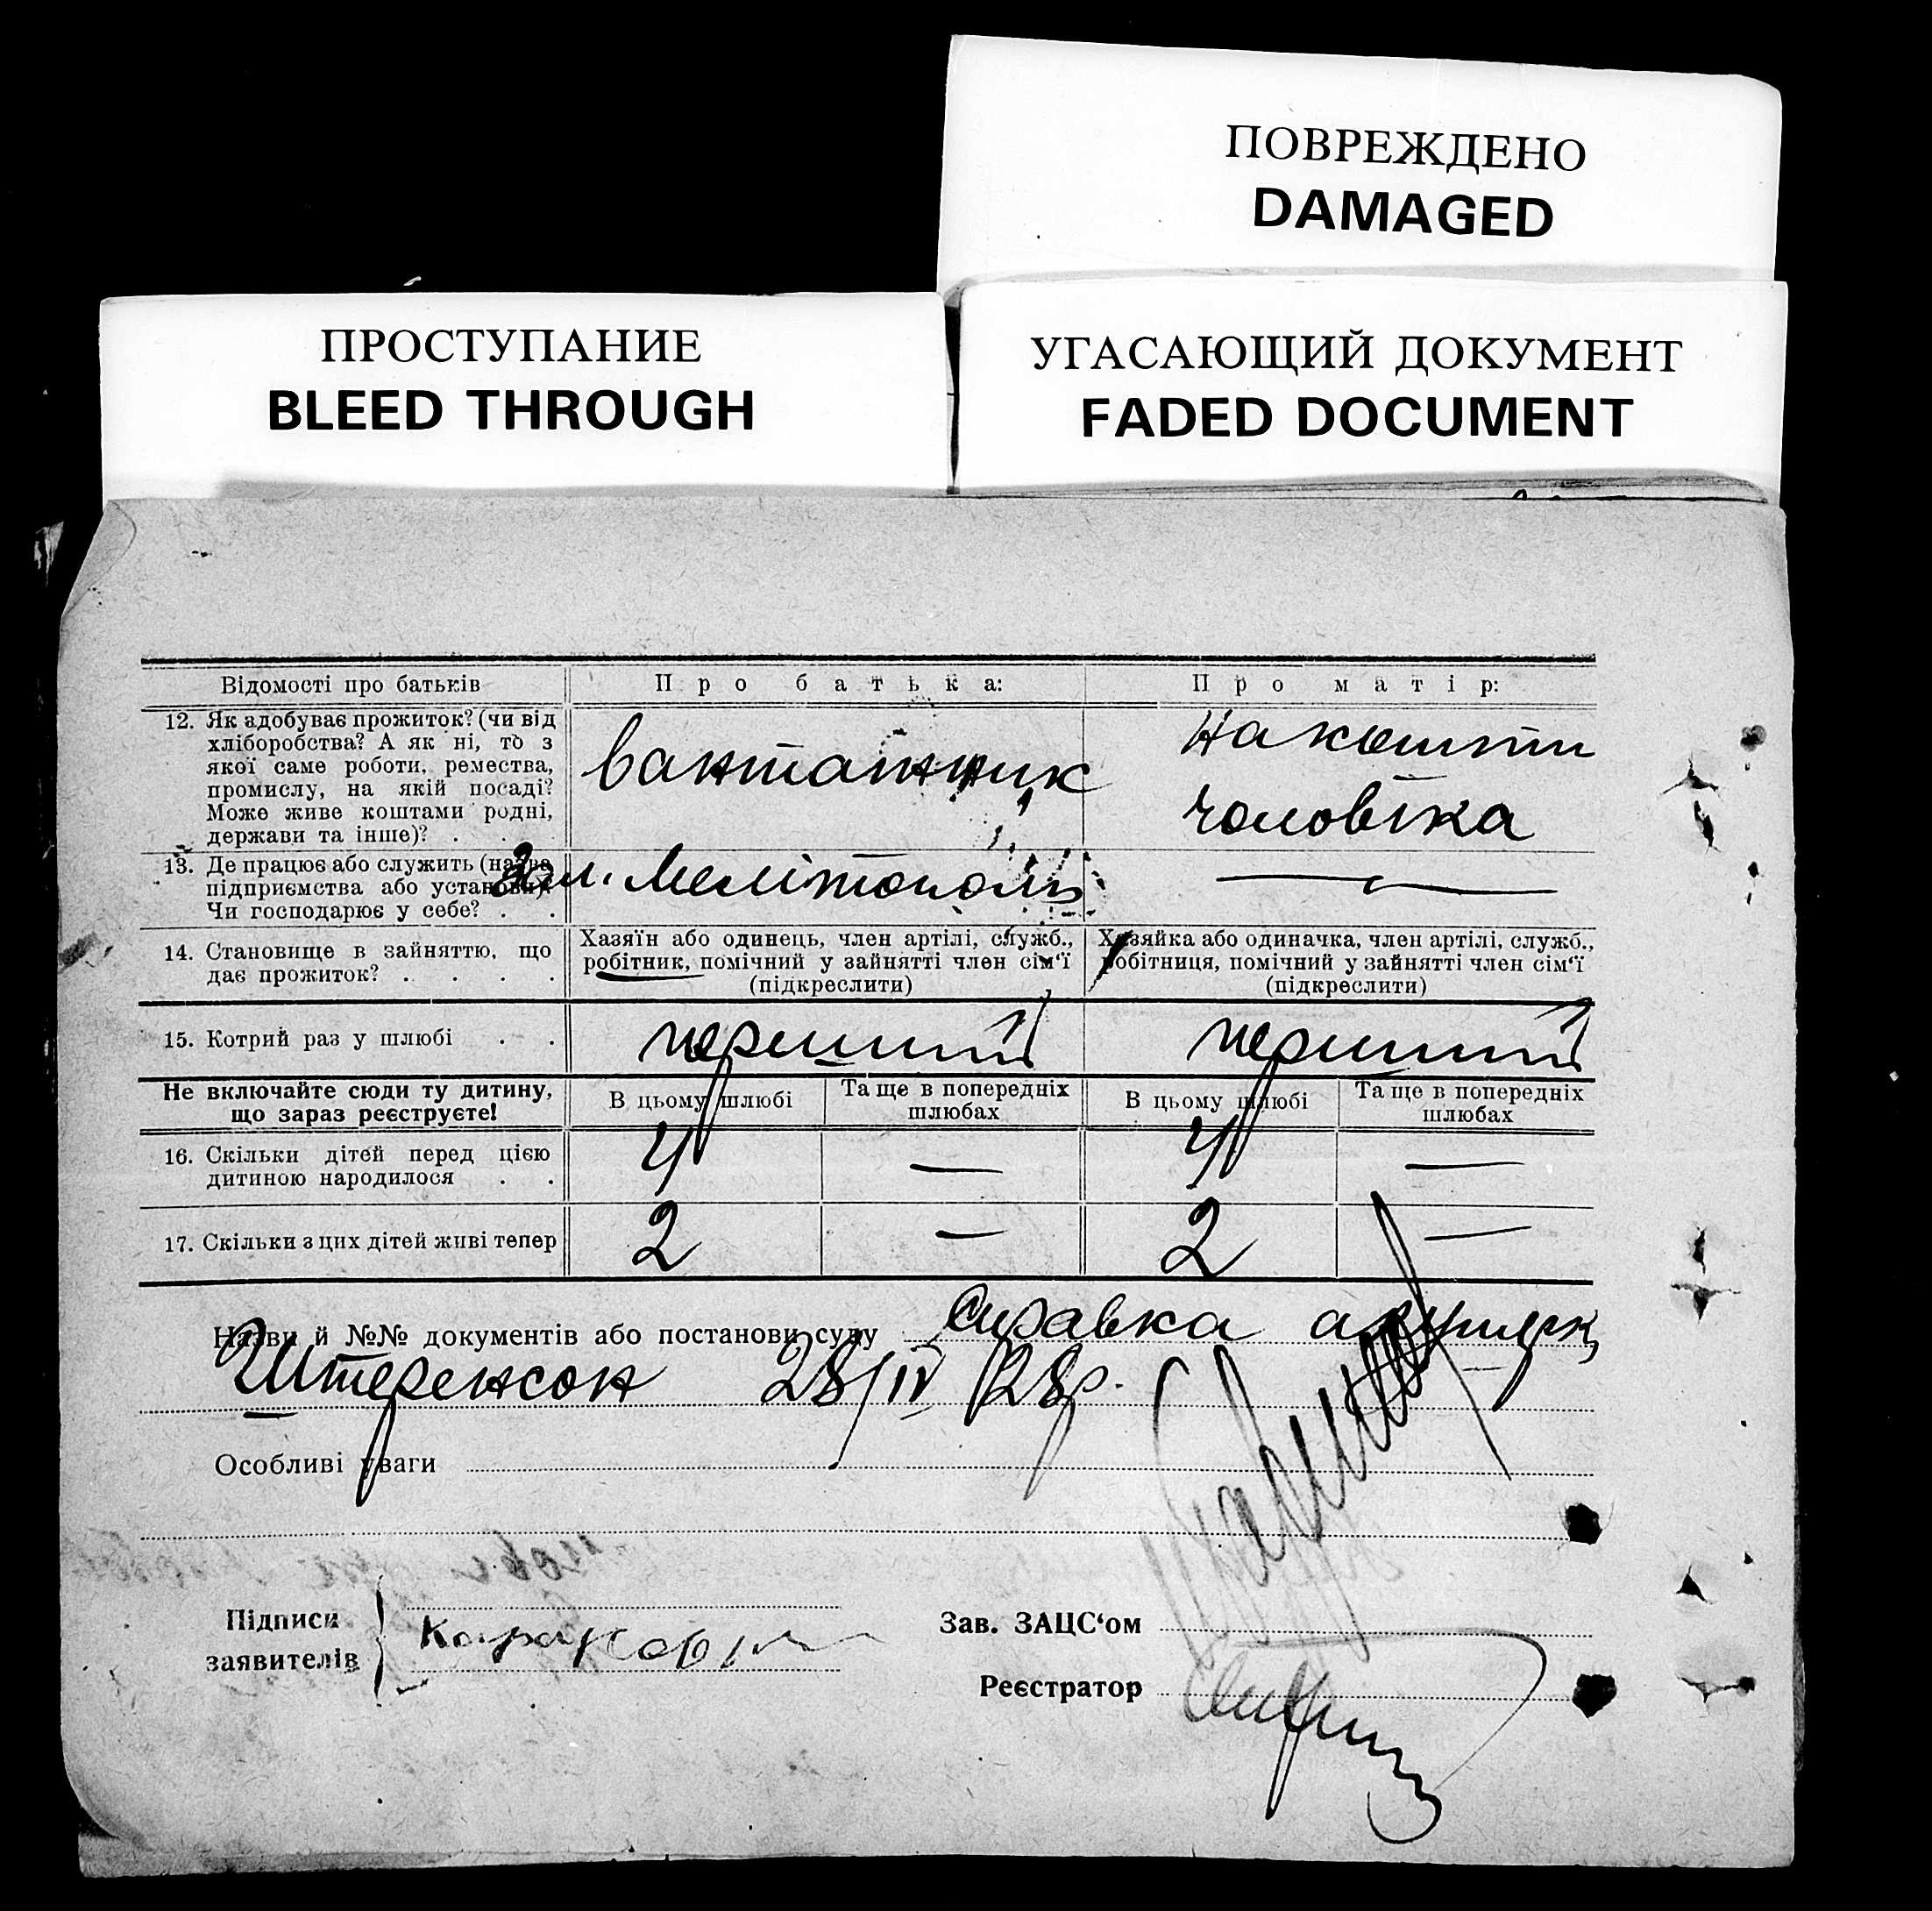 ПОВРЕЖДЕНО
DAMAGED
ПРОСТУПАНИЕ
BLEED THROUGH
УГАСАЮЩИЙ ДОКУМЕНТ
FADED DOCUMENT
Відомості про батьків
Про батька:
Про матір:
12. Як здобуває прожиток? (чи від
хліборобства? А як ні, то з
якої саме роботи, ремества,
промислу, на якій посаді?
Може живе коштами родні,
держави та інше)? .
вантажник
На кошти
чоловіка
13. Де працює або служить (назва
підприємства або установи)?
Чи господарює у себе? . .
Мелітополь
14. Становище в зайняттю, що
дає прожиток? . . . .
Хазяїн або одинець, член артілі, служб.,
робітник, помічний у зайнятті член сім'ї
(підкреслити)
Хазяйка або одиначка, член артілі, служб.,
робітниця, помічний у зайнятті член сім'ї
(підкреслити)
15. Котрий раз у шлюбі . .
перший
перший
Не включайте сюди ту дитину,
що зараз реєструєте!
В цьому шлюбі
Та ще в попередніх
шлюбах
В цьому шлюбі
Та ще в попередніх
шлюбах
16. Скільки дітей перед цією
дитиною народилося . .
4 — 4 —
17. Скільки з цих дітей живі тепер
2 — 2 —
Назви й №№ документів або постанови суду справка
Штеренсон 28/IV 28р.
Особливі уваги
Підписи
заявителів
Зав. ЗАЦС'ом
Реєстратор